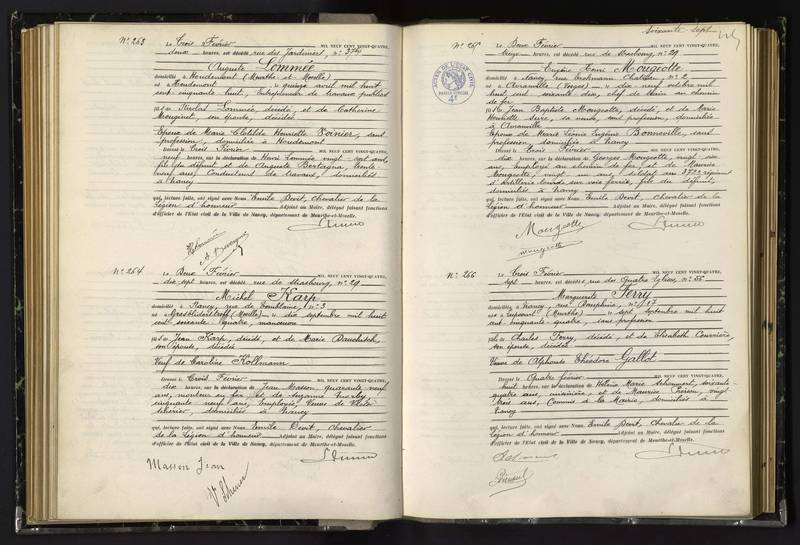 N° 263
Le Trois Février MIL NEUF CENT VINGT-QUATRE,
deux heures, est décédé rue des Jardiniers, n°
Auguste Lommée
domicilié à Houdemont (Meurthe-et-Moselle)
né à Houdemont le quinze avril mil huit
cent cinquante huit, Entrepreneur de travaux publics
fils de Nicolas Lommée, décédé, et de Catherine
Mougenot, son épouse, décédée
Epoux de Marie Clotilde Henriette Poinier, sans
profession, domiciliée à Houdemont
Dressé le Trois Février MIL NEUF CENT VINGT-QUATRE,
neuf heures, sur la déclaration de Henri Lommée vingt sept ans,
fils du défunt et de Auguste Bertagna, trente
neuf ans, Conducteur de travaux, domiciliés
à Nancy
qui, lecture faite, ont signé avec Nous Emile Devit, chevalier de la
Légion d'honneur Adjoint au Maire, délégué faisant fonctions
d'Officier de l'Etat civil de la Ville de Nancy, département de Meurthe-et-Moselle.
N° 264
Le Deux Février MIL NEUF CENT VINGT-QUATRE,
dix sept heures, est décédé rue de Strasbourg, n° 29
Michel Karp
domicilié à Nancy, rue de Tomblaine, n° 3
né à (Moselle) le dix septembre mil huit
cent soixante quatre, manoeuvre
fils de Jean Karp, décédé, et de Marie
son épouse, décédée
Veuf de Caroline Kollmann
Dressé le Trois Février MIL NEUF CENT VINGT-QUATRE,
dix heures, sur la déclaration de Jean Masson, quarante neuf
ans, monteur en fer et de Suzanne
cinquante neuf ans, Employée, Veuve de
Scherer, domiciliés à Nancy
qui, lecture faite, ont signé avec Nous Emile Devit, Chevalier
de la Légion d'honneur Adjoint au Maire, délégué faisant fonctions
d'Officier de l'Etat civil de la Ville de Nancy, département de Meurthe-et-Moselle.
Masson Jean
Vve Scherer
Soixante Sept
N° 265
Le Deux Février MIL NEUF CENT VINGT-QUATRE,
treize heures, est décédé rue de Strasbourg n° 29
Eugène Henri Mougeotte
domicilié à Nancy, rue n° 2
né à Avranville (Vosges) le dix neuf octobre mil
huit cent soixante dix, chef de Train au chemin
de fer
fils de Jean Baptiste Mougeotte, décédé, et de Marie
Henriette sa veuve, sans profession, domiciliée
à Avranville
Epoux de Marie Léonie Eugénie Bonneville, sans
profession, domiciliée à Nancy
Dressé le Trois Février MIL NEUF CENT VINGT-QUATRE,
dix heures, sur la déclaration de Georges Mougeotte, vingt
ans, Employé au chemin de fer, et de Maurice
Mougeotte, vingt un ans, soldat au 372e régiment
d'Artillerie lourde sur voie ferrée, fils du défunt,
domiciliés à Nancy
qui, lecture faite, ont signé avec Nous Emile Devit, chevalier de la
Légion d'honneur Adjoint au Maire, délégué faisant fonctions
d'Officier de l'Etat civil de la Ville de Nancy, département de Meurthe-et-Moselle.
Mougeotte
Mougeotte
N° 266
Le Trois Février MIL NEUF CENT VINGT-QUATRE,
sept heures, est décédée, rue des Quatre Eglises, n° 55
Marguerite Ferry
domiciliée à Nancy, rue n° 117
née à (Meurthe) le sept Septembre mil huit
cent cinquante quatre, sans profession
fille de Charles Ferry, décédé, et de Elisabeth
son épouse, décédée
Veuve de Alphonse Théodore Gallot
Dressé le Quatre février MIL NEUF CENT VINGT-QUATRE,
huit heures, sur la déclaration de Hélène Marie soixante
quatre ans, cuisinière, et de Maurice vingt
trois ans, Commis à la Mairie, domiciliés à
Nancy
qui, lecture faite, ont signé avec Nous Emile Devit, Chevalier de la
Légion d'honneur Adjoint au Maire, délégué faisant fonctions
d'Officier de l'Etat civil de la Ville de Nancy, département de Meurthe-et-Moselle.